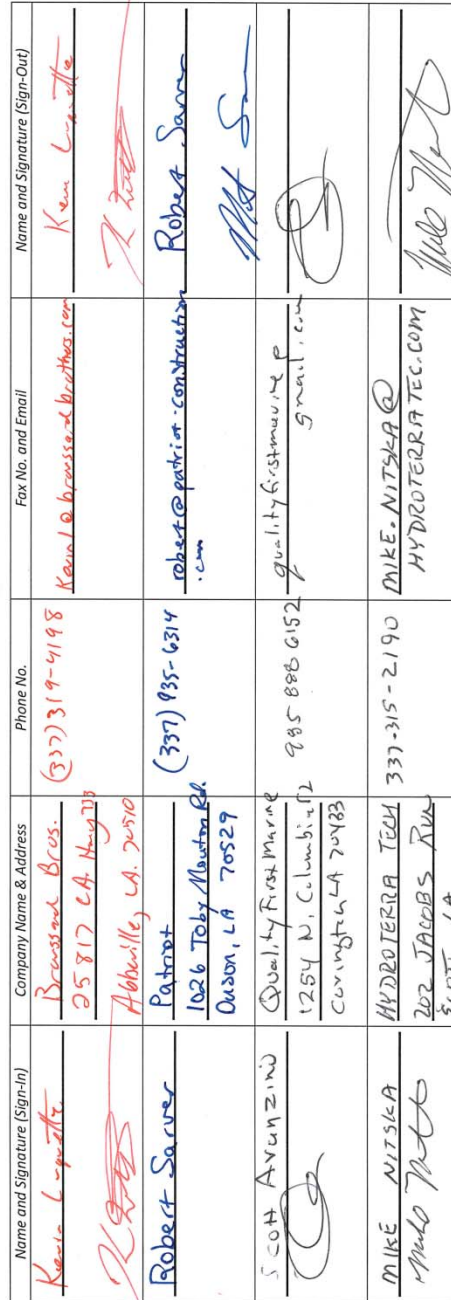 Name and Signature (Sign-In)
Company Name & Address
Phone No.
Fax No. and Email
Name and Signature (Sign-Out)
Broussard Bros.
25817 LA. Hwy 333
Abbeville, LA. 70510
(337) 319-4198
Robert Sarver
Patriot
1026 Toby Mouton Rd.
Duson, LA 70529
(337) 935-6314
robert@patriot-construction
.com
Robert Sarver
Scott Avanzino
Quality First Marine
1254 N. Columbia St
Covington LA 70433
985 888 6152
qualityfirstmarine@
gmail.com
MIKE NITSKA
HYDROTERRA TECH
202 JACOBS RUN
SCOTT, LA
337-315-2190
MIKE.NITSKA@
HYDROTERRATEC.COM